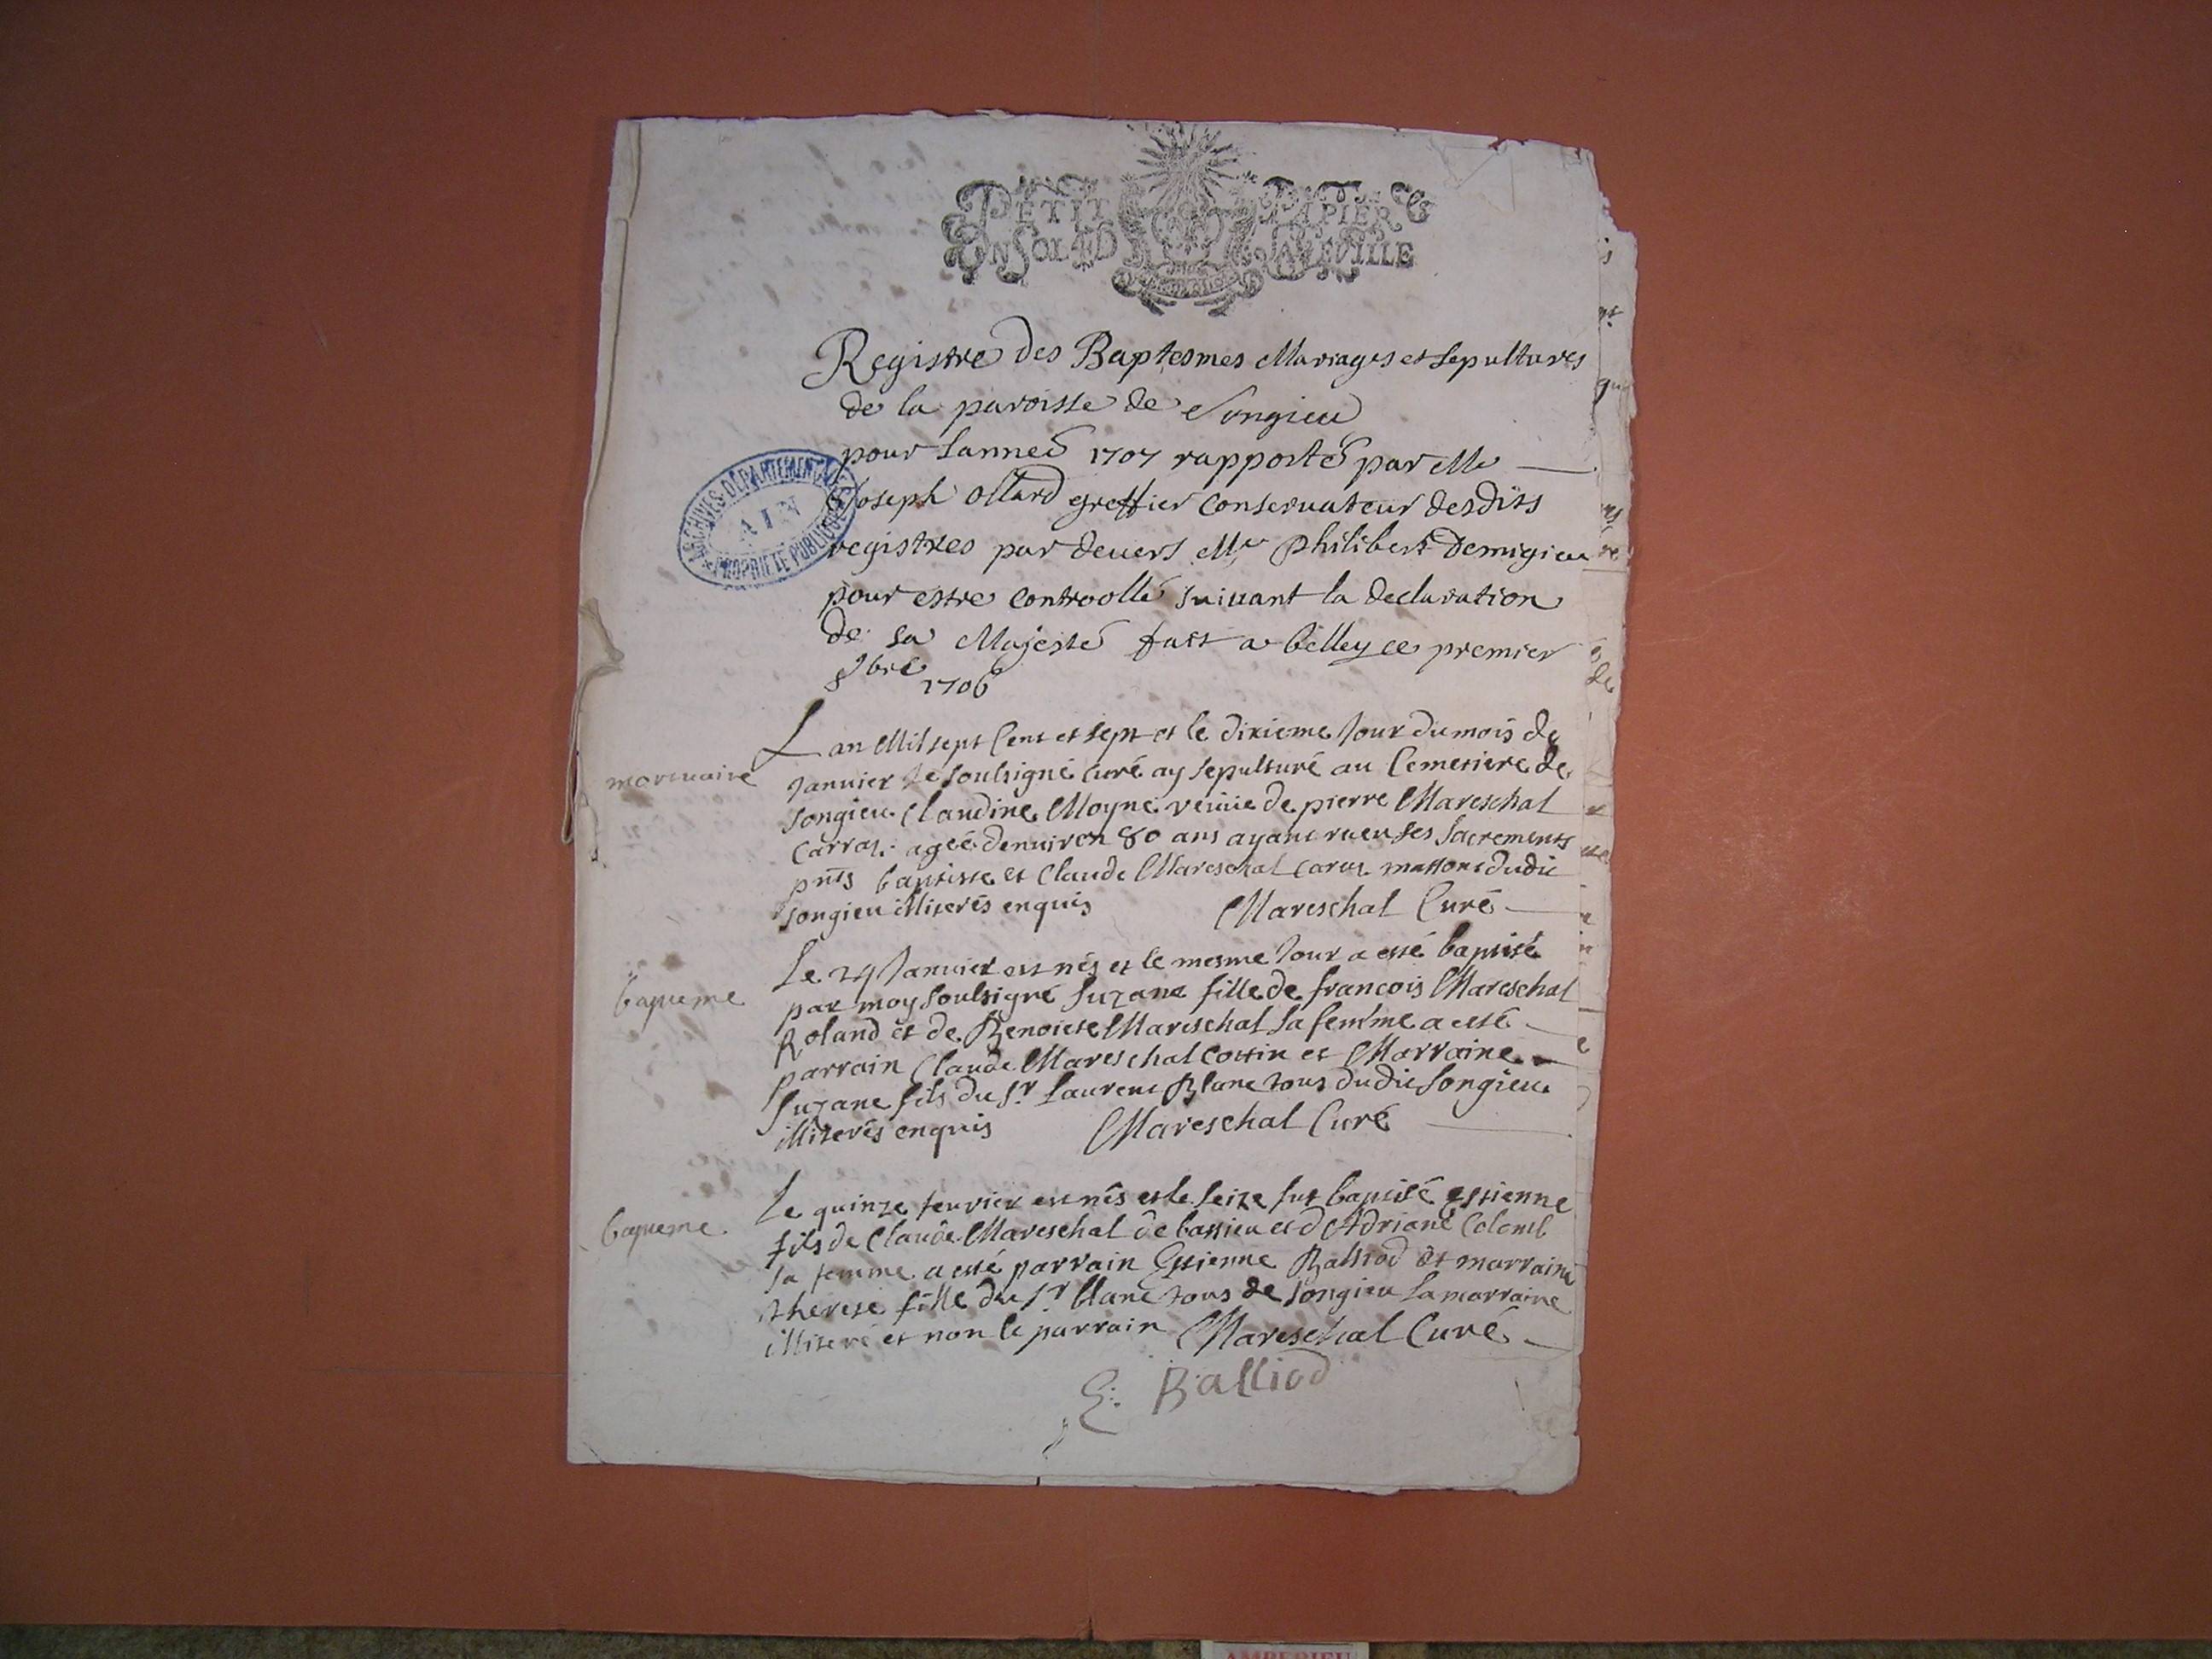 PETIT PAPIER
UN SOL LA FEVILLE
Registre des Baptesmes Mariages et sepultures
de la paroisse de Songieu
pour lanneé 1707 rapporté par Me
Joseph ollard greffier Conseruateur desdits
registres par deuers Mre Philibert Demigieu
pour estre Controollé suiuant la declaration
de sa Majesté fait a belley ce premier
9bre 1706
ARCHIVES DEPARTEMENTALES
AIN
PROPRIETE PUBLIQUE
Lan Mil sept Cent et sept et le dixieme Jour du mois de
mortuaire
Januier Je soulsigné Curé ay sepulturé au Cemetiere de
songieu Claudine Moyne veuue de pierre Mareschal
Carraz ageé denuiron 80 ans ayant receu ses sacrements
pnts baptiste et Claude Mareschal Caraz massons dudit
songieu illiterés enquis Mareschal Curé
Le 24 Januier est nés et le mesme Jour a esté baptisé
bapteme
par moy soulsigné suzane fille de francois Mareschal
Roland et de Benoite Mareschal sa femme a esté
parrain Claude Mareschal Cottin et Marraine
suzane fils du sr. Laurent Blanc tous dudit songieu
illiterés enquis Mareschal Curé
Le quinze feurier est nés et le seize fut baptisé Estienne
bapteme
fils de Claude Mareschal de bassieu et d Adriane Colomb
sa femme a esté parrain Estienne Balliod et marraine
therese fille du sr. blanc tous de songieu La marraine
illiteré et non le parrain Mareschal Curé
E: Balliod
AMBERIEU